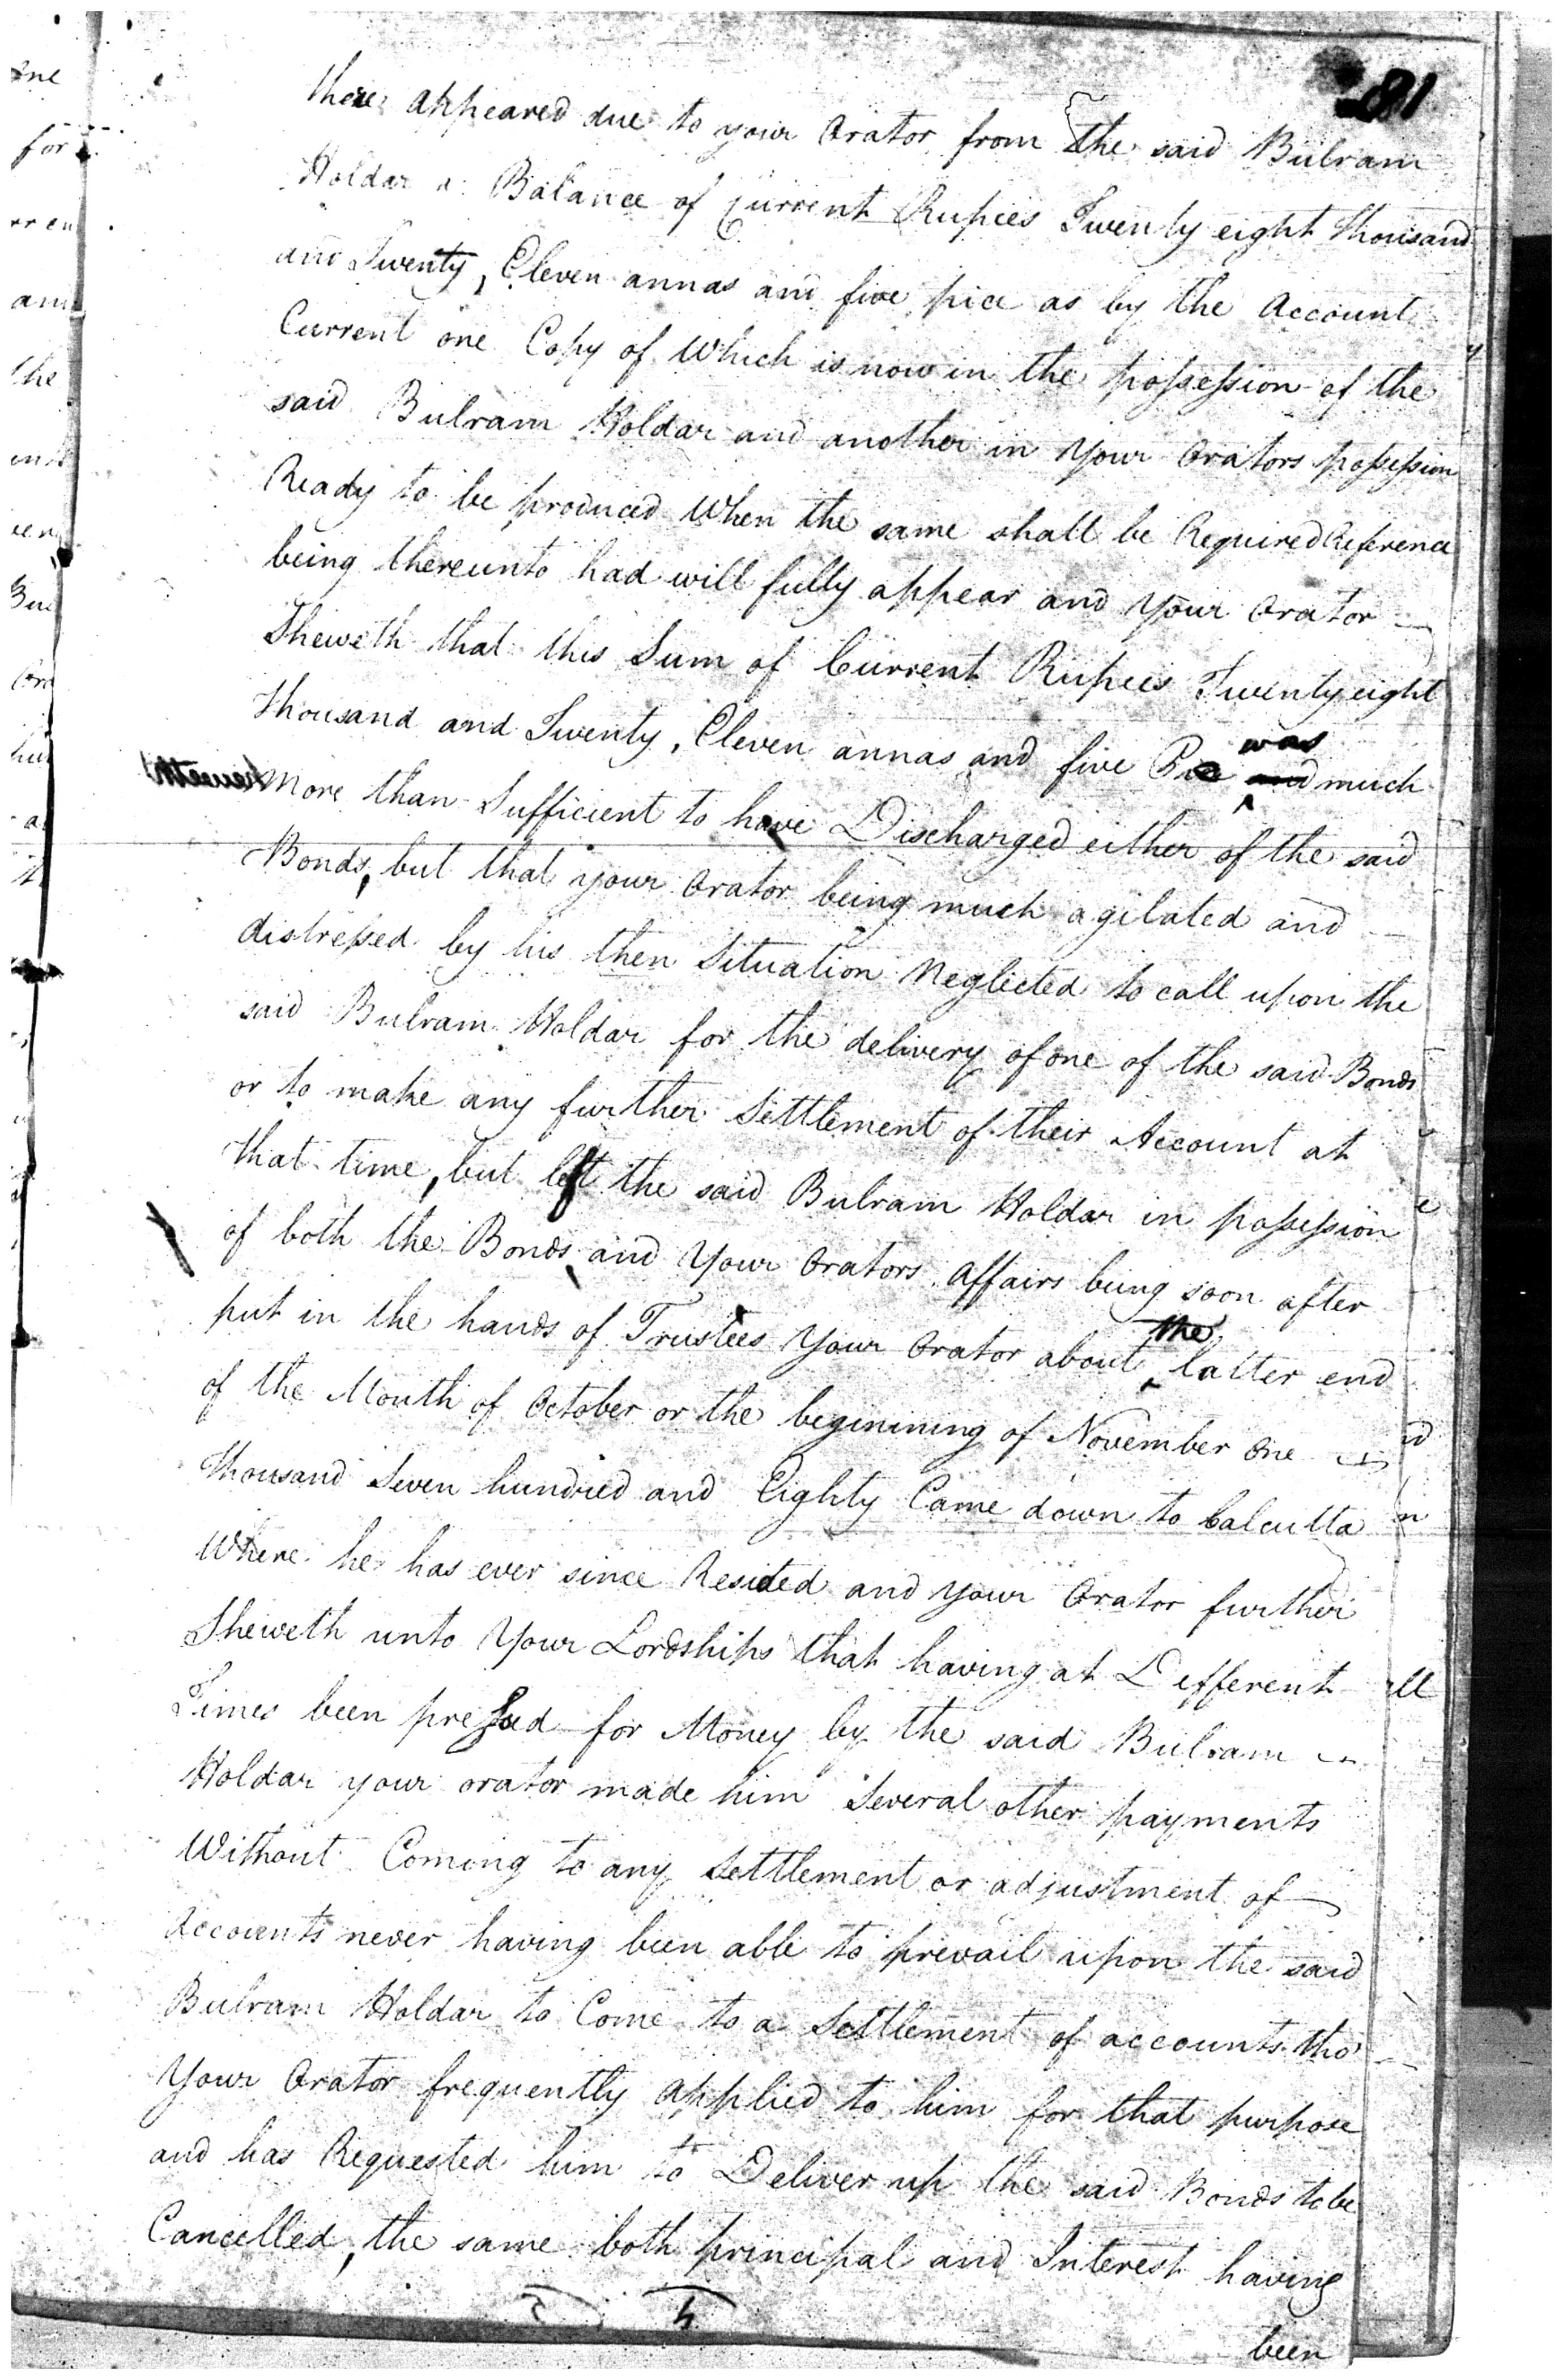 281
there appeared due to your Orator from the said Bulram
Holdar a Balance of Current Rupees Twenty eight thousand
and Twenty, Eleven annas and five pice as by the Account
Current one Copy of Which is now in the possession of the
said Bulram Holdar and another in Your Orators possession
Ready to be produced When the same shall be Required Reference
being thereunto had will fully appear and Your Orator
Sheweth that this Sum of Current Rupees Twenty eight
thousand and Twenty, Eleven annas and five Pice was much
More than Sufficient to have Discharged either of the said
Bonds, but that your Orator being much agitated and
distressed by his then Situation Neglected to call upon the
said Bulram Holdar for the delivery of one of the said Bonds
or to make any further Settlement of their Account at
that time, but left the said Bulram Holdar in possession
of both the Bonds, and Your Orators Affairs being soon after
put in the hands of Trustees Your Orator about the latter end
of the Month of October or the beginining of November One
thousand Seven hundred and Eighty Came down to Calcutta
Where he has ever since Resided and your Orator further
Sheweth unto Your Lordships that having at Different
Times been pressed for Money by the said Bulram
Holdar your orator made him Several other payments
Without Coming to any Settlement or adjustment of
Accounts never having been able to prevail upon the said
Bulram Holdar to Come to a Settlement of accounts tho'
Your Orator frequently applied to him for that purpose
and has Requested him to Deliver up the said Bonds to be
Cancelled, the same both principal and Interest having
been